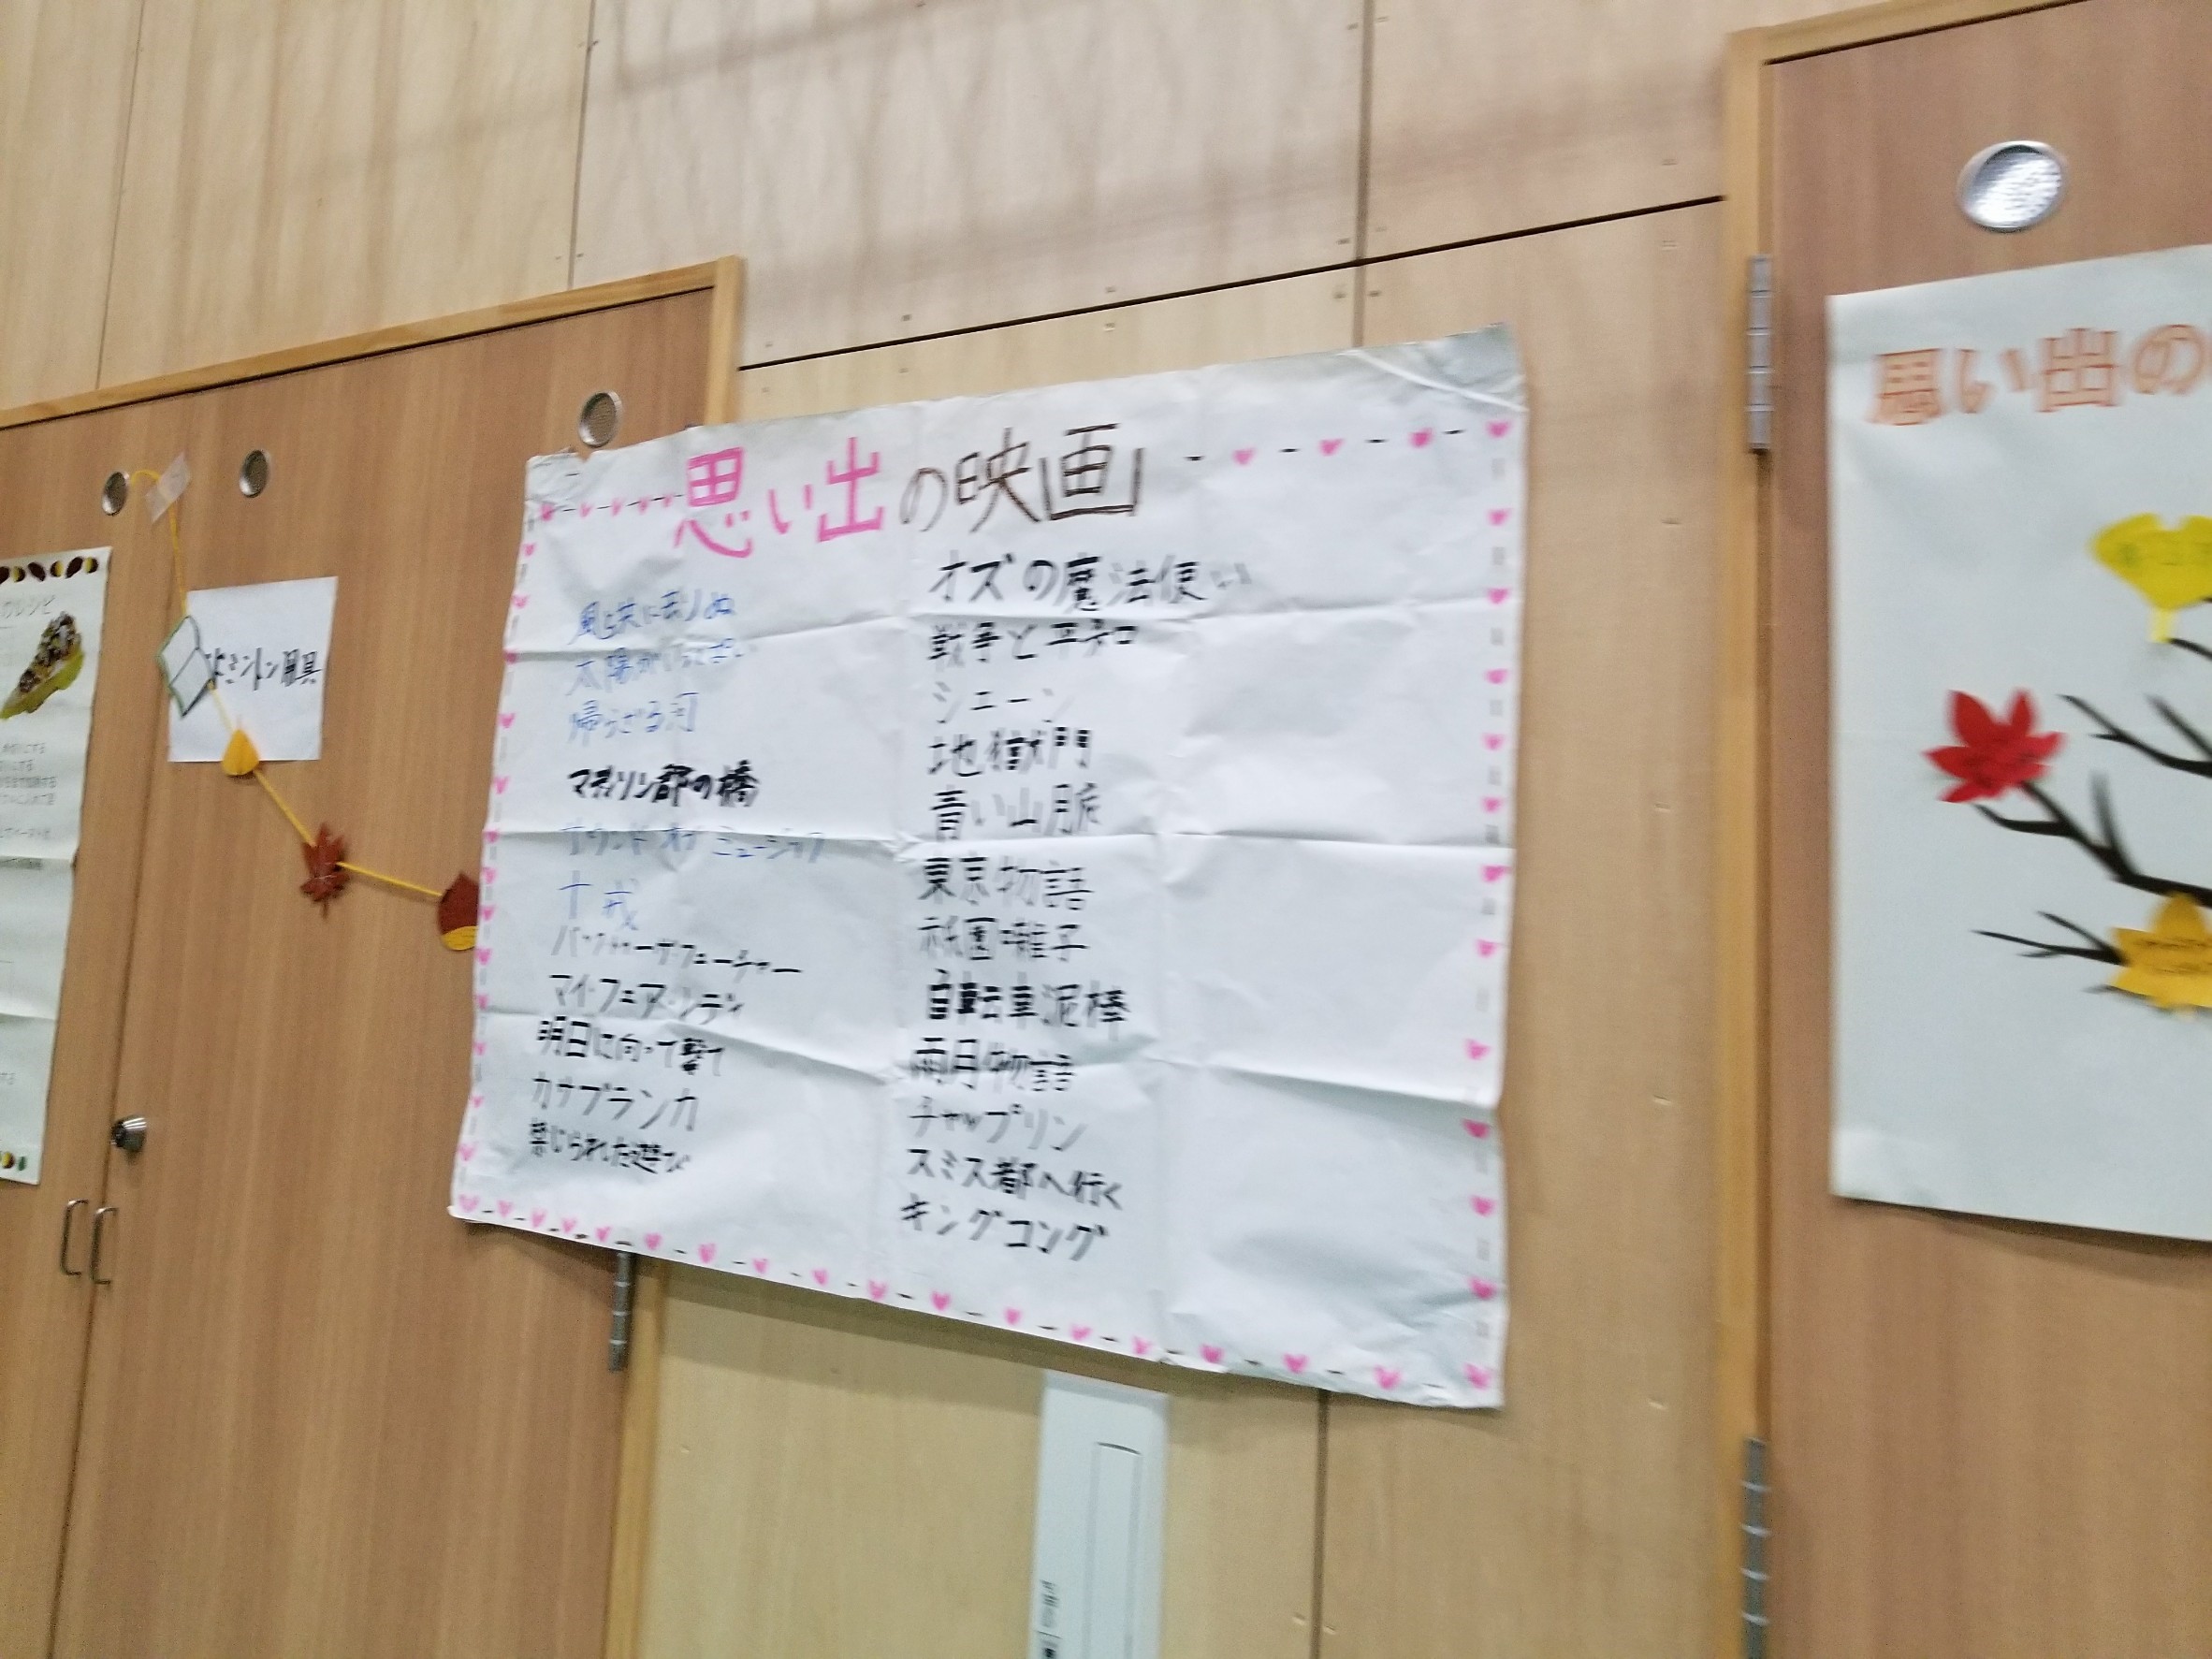 思い出の映画
風と共に去りぬ
太陽がいっぱい
帰らざる河
マディソン郡の橋
サウンドオブミュージック
十戒
バックトゥーザフューチャー
マイ・フェア・レディ
明日に向って撃て
カサブランカ
禁じられた遊び
オズの魔法使い
戦争と平和
シェーン
地獄門
青い山脈
東京物語
祇園囃子
自転車泥棒
雨月物語
チャップリン
スミス都へ行く
キングコング
思い出の
用具
レシピ